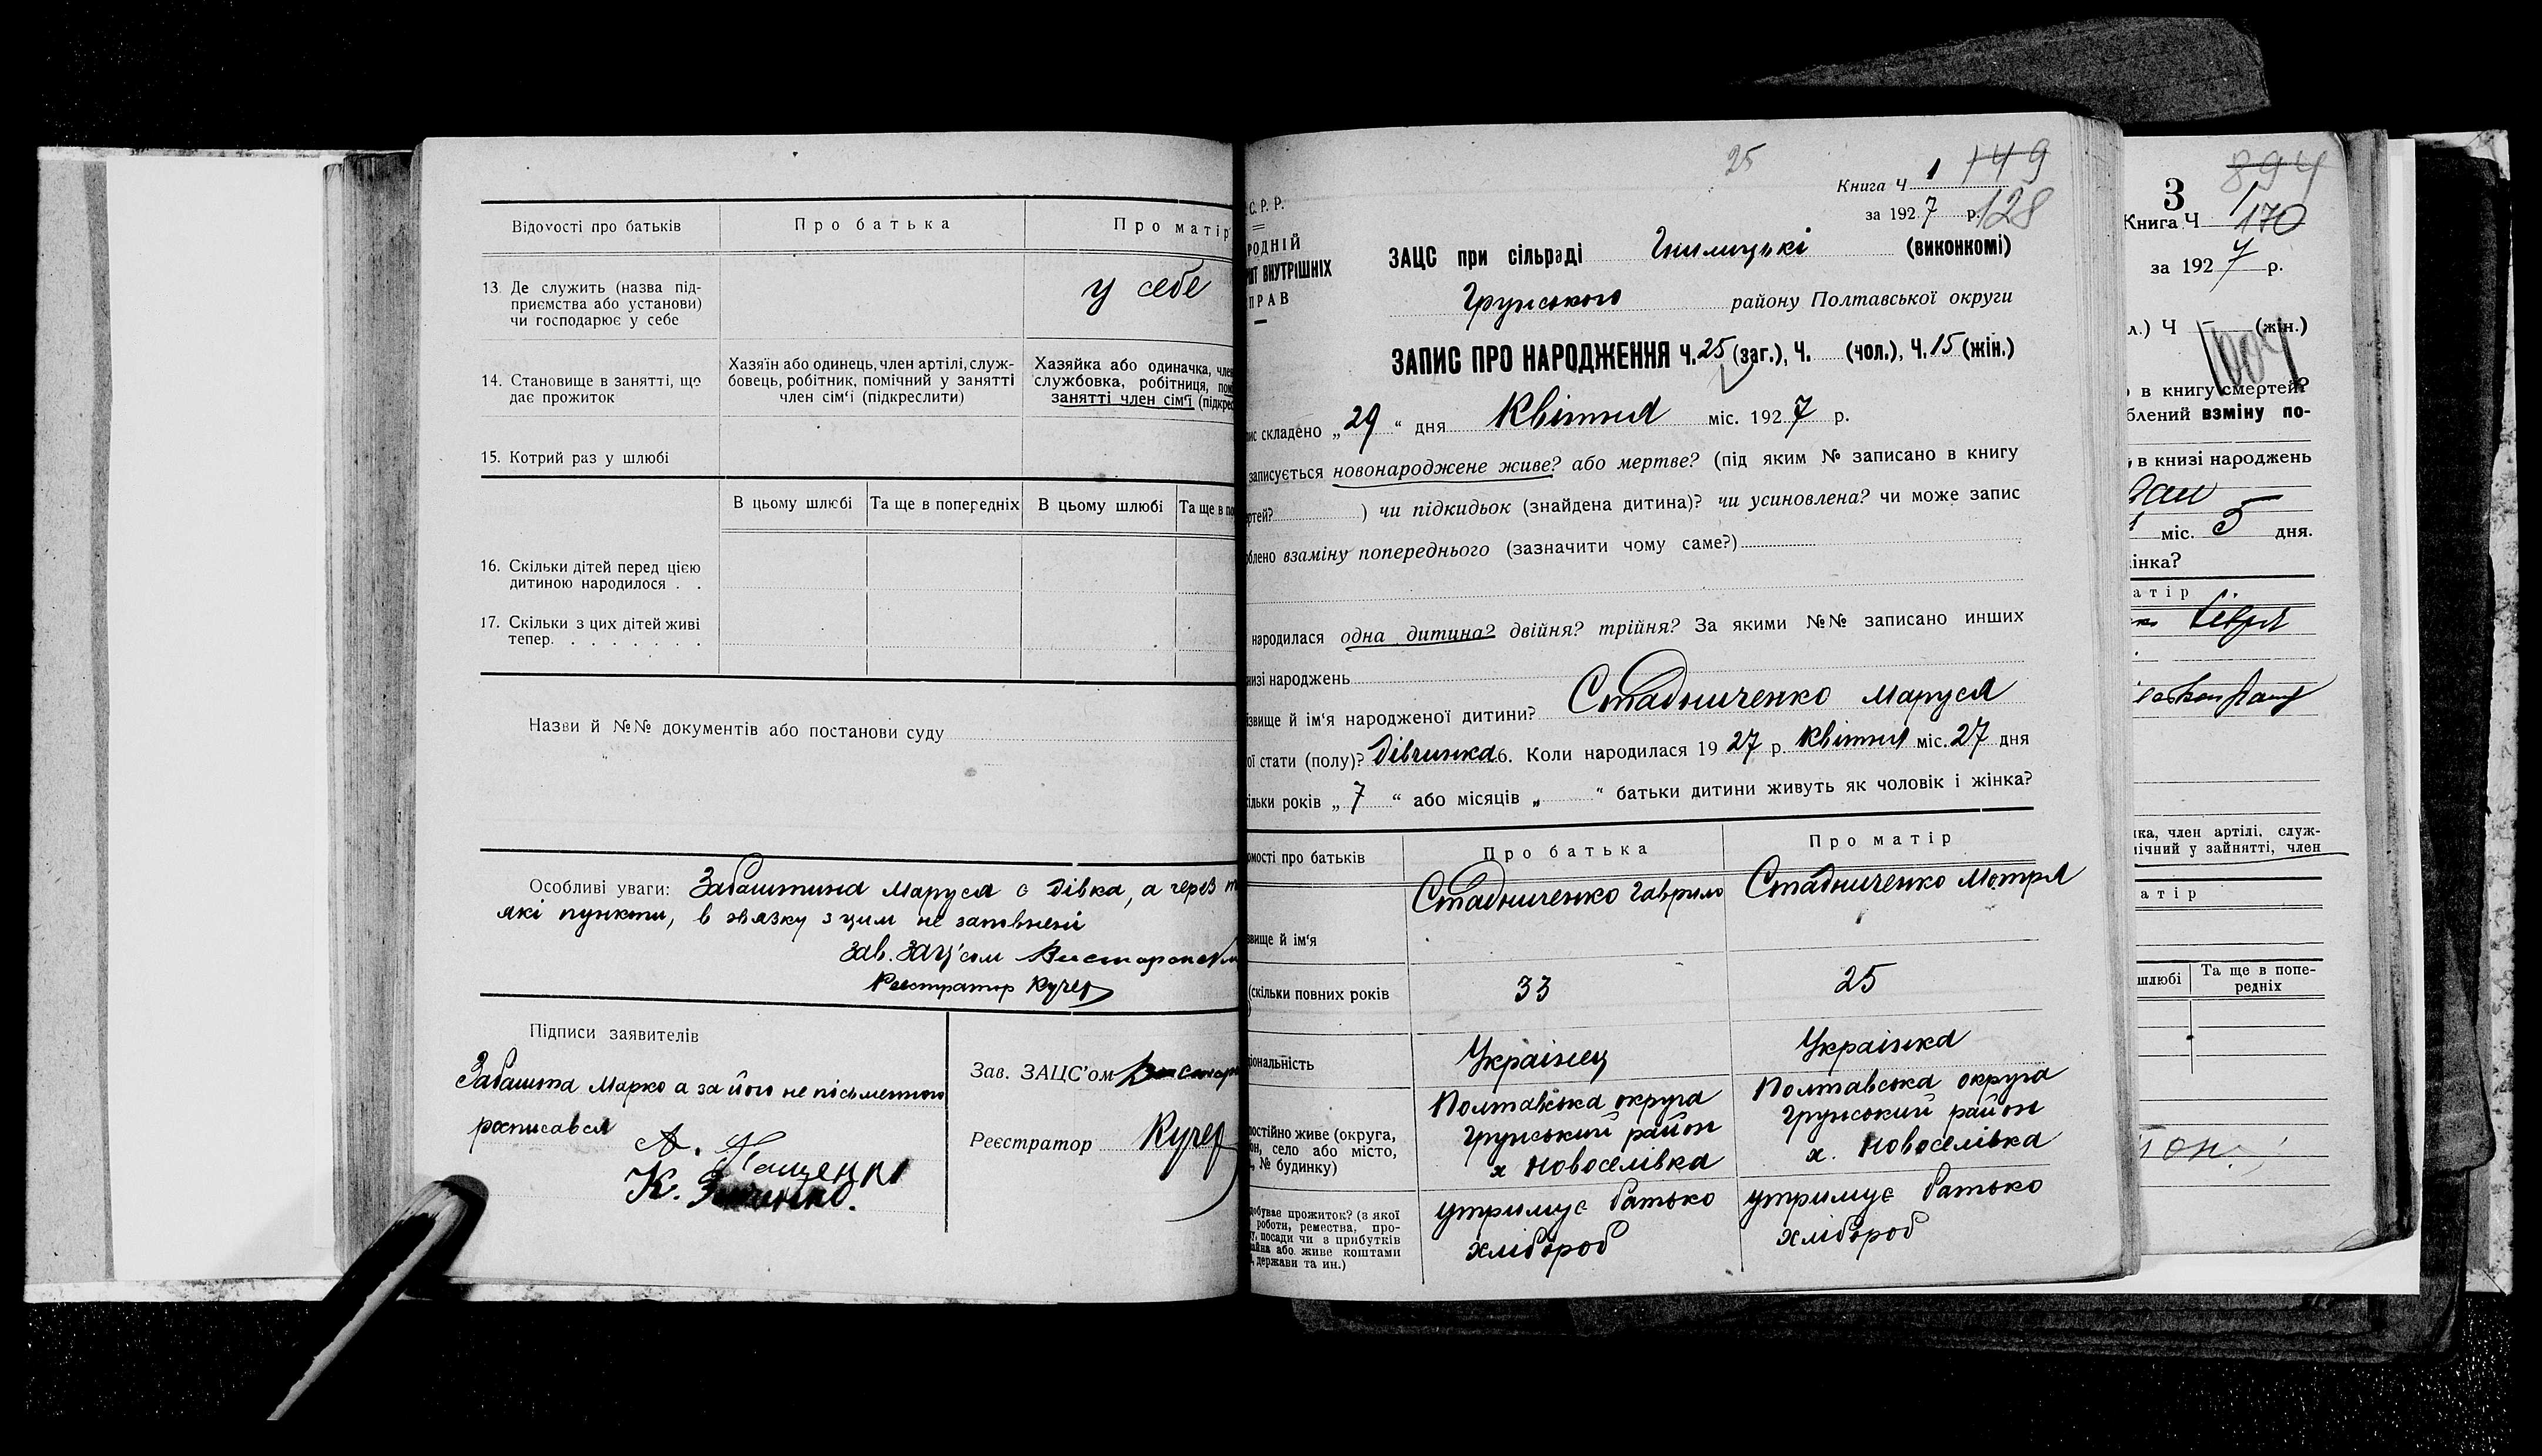 Відомості про батьків
Про батька
Про матір
13. Де служить (назва під-
приємства або установи)
чи господарює у себе
у себе
14. Становище в занятті, що
дає прожиток
Хазяїн або одинець, член артілі, служ-
бовець, робітник, помічний у занятті
член сім'ї (підкреслити)
Хазяйка або одиначка, член
службовка, робітниця,
занятті член сім'ї
15. Котрий раз у шлюбі
В цьому шлюбі
Та ще в попередніх
В цьому шлюбі
Та ще в
16. Скільки дітей перед цією
дитиною народилося . .
17. Скільки з цих дітей живі
тепер. . . . . . . .
Назви й №№ документів або постанови суду
Особливі уваги: Забаштина Маруся є дівка, а через
які пункти, в звязку з цим не заповнені
Зав. Зацсом
Реєстратор Кучер
Підписи заявителів
Забашта Марко а за його не письменного
росписався
А. Пащенко
К.
Зав. ЗАЦС'ом
Реєстратор Кучер
25
Книга Ч. 1 149
за 1927 р. 128
С. Р. Р.
РОДНІЙ
ВНУТРІШНІХ
ПРАВ
ЗАЦС при сільраді (виконкомі)
Грунського району Полтавської округи
ЗАПИС ПРО НАРОДЖЕННЯ Ч. 25 (заг.), Ч. (чол.), Ч. 15 (жін.)
складено „29“ дня Квітня міс. 1927 р.
записується новонароджене живе? або мертве? (під яким № записано в книгу
) чи підкидьок (знайдена дитина)? чи усиновлена? чи може запис
взаміну попереднього (зазначити чому саме?)
народилася одна дитина? двійня? трійня? За якими №№ записано инших
народжень
й ім'я народженої дитини? Стадниченко Маруся
стати (полу)? дівчинка 6. Коли народилася 1927 р. Квітня міс. 27 дня
років „7“ або місяців „ “ батьки дитини живуть як чоловік і жінка?
про батьків
Про батька
Про матір
й ім'я
Стадниченко Гаврило
Стадниченко Мотря
(скільки повних років
33
25
Українец
Українка
живе (округа,
село або місто,
№ будинку)
Полтавська округа
Грунський район
х Новоселівка
Полтавська округа
Грунський район
х. Новоселівка
прожиток? (з якої
роботи, ремества, про-
посади чи з прибутків
або живе коштами
держави та ин.)
утримує батько
хлібороб
утримує батько
хлібороб
894
3
Книга Ч. 1
170
за 1927 р.
Ч (жін.)
в книгу смертей?
взміну по-
в книзі народжень
міс. 5 дня.
член артілі, служ-
у зайнятті, член
шлюбі
Та ще в попе-
редніх